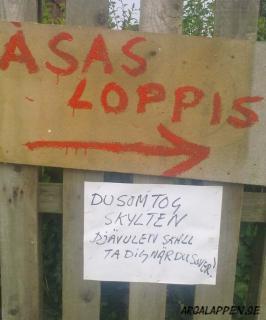 ÅSAS
LOPPIS
DU SOM TOG
SKYLTEN
DJÄVULEN SKALL
TA DIG NÄR DU SOVER!
ARGALAPPEN.SE